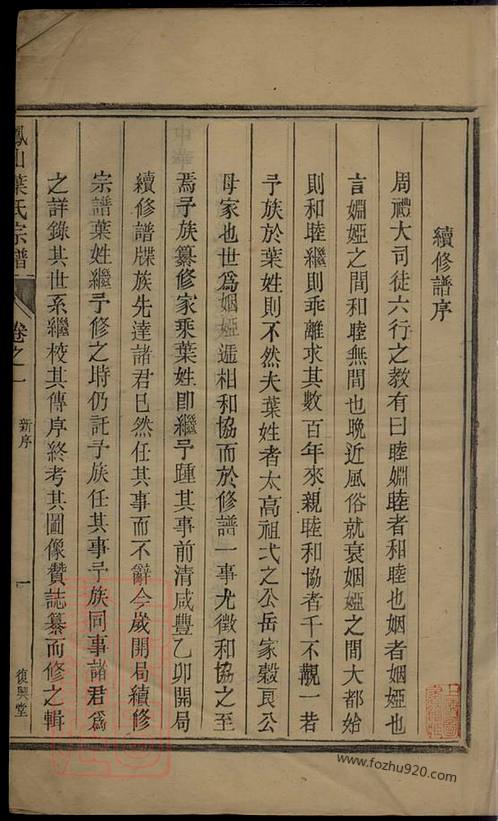 續修譜序
周禮大司徒六行之教有曰睦婣睦者和睦也姻者姻婭也
言婣婭之間和睦無間也晚近風俗就衰姻婭之間大都始
則和睦繼則乖離求其數百年來親睦和協者千不觀一若
予族於葉姓則不然夫葉姓者太高祖弌之公岳家穀良公
母家也世爲姻婭遞相和協而於修譜一事尤徵和協之至
焉予族纂修家乘葉姓即繼予踵其事前清咸豐乙卯開局
續修譜牒族先達諸君已然任其事而不辭今歲開局續修
宗譜葉姓繼予修之時仍託予族任其事予族同事諸君爲
之詳錄其世系繼校其傳序終考其圖像贊誌纂而修之輯
鳳山葉氏宗譜 卷之一 新序 一 復興堂
www.fozhu920.com